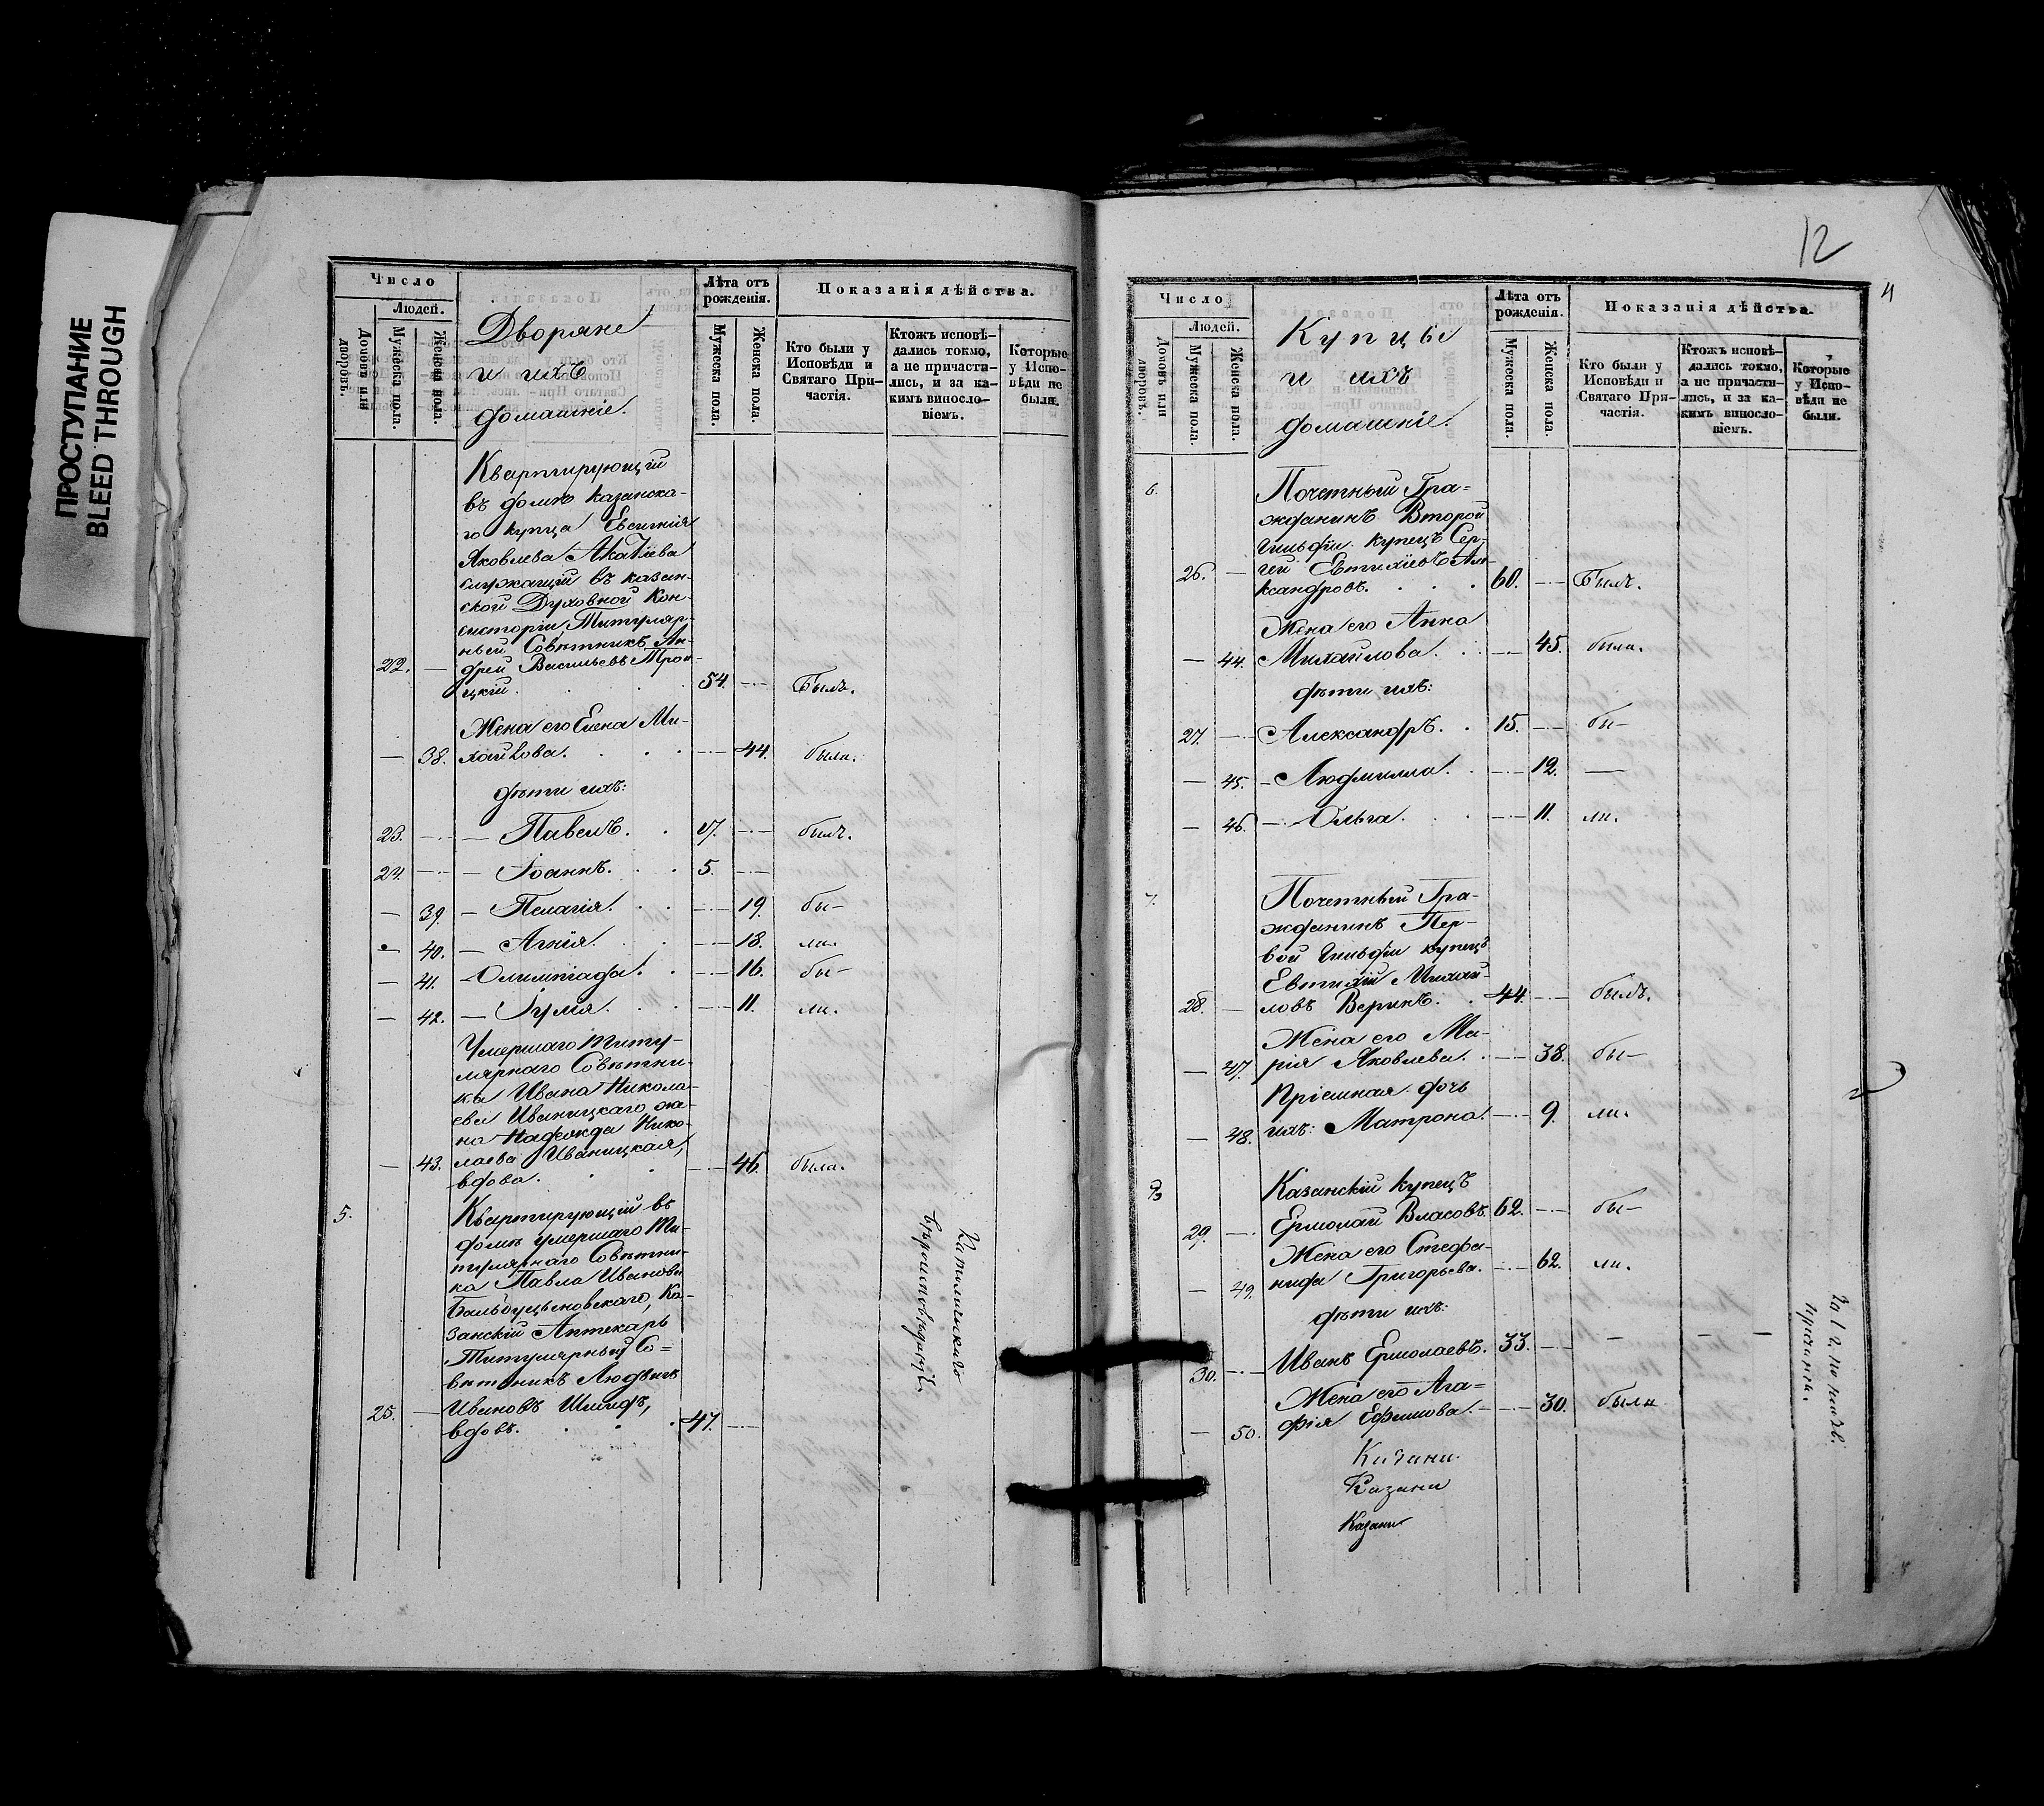 ПРОСТУПАНИЕ
BLEED THROUGH
Число
Людей.
Домовъ или дворовъ.
Мужеска пола.
Женска пола.
Дворяне
и ихъ
домашніе.
Лѣта отъ
рожденія.
Мужеска пола.
Женска пола.
Показанія дѣйства.
Кто были у
Исповѣди и
Святаго При-
частія.
Ктожъ исповѣ-
дались токмо,
а не причасти-
лись, и за ка-
кимъ винословіемъ.
Которые
у Испо-
вѣди не
были.
Квартирующій
въ домѣ казанска-
го купца Евсигнія
Яковлева
служащій въ казан-
ской Духовной Кон-
систоріи Титуляр-
ный Совѣтникъ Ан-
22. — дрей Васильевъ Трои-
цкій. 54. — Былъ.
Жена его Елена Ми-
— 38. хайлова. — 44. была.
дѣти ихъ:
23. — — Павелъ. 17. — былъ.
24. — — Іоаннъ. 5. —
— 39. — Пелагія. — 19. бы-
— 40. — Агнія. — 18. ли.
— 41. — Олимпіада. — 16. бы-
— 42. — Іулія. — 11. ли.
Умершаго Титу-
лярнаго Совѣтни-
ка Ивана Никола-
ева Иваницкаго же-
на Надежда Нико-
— 43. лаева Иваницкая, — 46. была.
вдова.
5. Квартирующій въ
домѣ умершаго Ти-
тулярнаго Совѣтни-
ка Павла Иванова
Ка-
занскій Аптекарь
Титулярный Со=
вѣтникъ Людвигъ
25. — Ивановъ
вдовъ. 47. —
Католическаго
вѣроисповѣданія.
12
4
Число
Людей.
Домовъ или дворовъ.
Мужеска пола.
Женска пола.
Купцы
и ихъ
домашніе.
Лѣта отъ
рожденія.
Мужеска пола.
Женска пола.
Показанія дѣйства.
Кто были у
Исповѣди и
Святаго При-
частія.
Ктожъ исповѣ-
дались токмо,
а не причасти-
лись, и за ка-
кимъ винословіемъ.
Которые
у Испо-
вѣди не
были.
6. Почетный Гра=
жданинъ Второй
Гильдіи купецъ Сер-
26. — гѣй Евтихіевъ Але-
ксандровъ. 60. — Былъ.
Жена его Анна
— 44. Михайлова. — 45. была.
дѣти ихъ:
27. — Александръ. 15. — бы-
— 45. — Людмилла. — 12. —
— 46. — Ольга. — 11. ли.
7. Почетный Гра-
жданинъ Пер-
вой Гильдіи купецъ
Евтихій Михай-
28. — ловъ Веринъ. 44. — былъ.
Жена его Ма-
— 47. рія Яковлева. — 38. бы-
Пріемная дочь
— 48. ихъ: Матрона. — 9. ли.
8 Казанскій купецъ
29. — Ермолай Власовъ. 62. — бы-
Жена его Стефа-
— 49. нида Григорьева. — 62. ли.
дѣти ихъ:
30. — Иванъ Ермолаевъ. 33. — — — —
Жена его Ага=
— 50. фія Ефимова. — 30. была
Казани
Казани
Казани